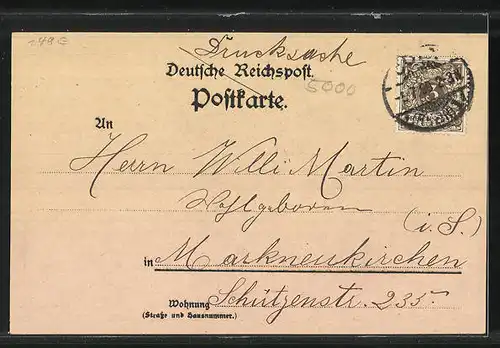 Drucksache
Deutsche Reichspost.
5000
Postkarte.
An
Herrn Willi Martin
Wohlgeboren
(i. S.)
in Markneukirchen
Wohnung Schützenstr. 235.
(Straße und Hausnummer.)